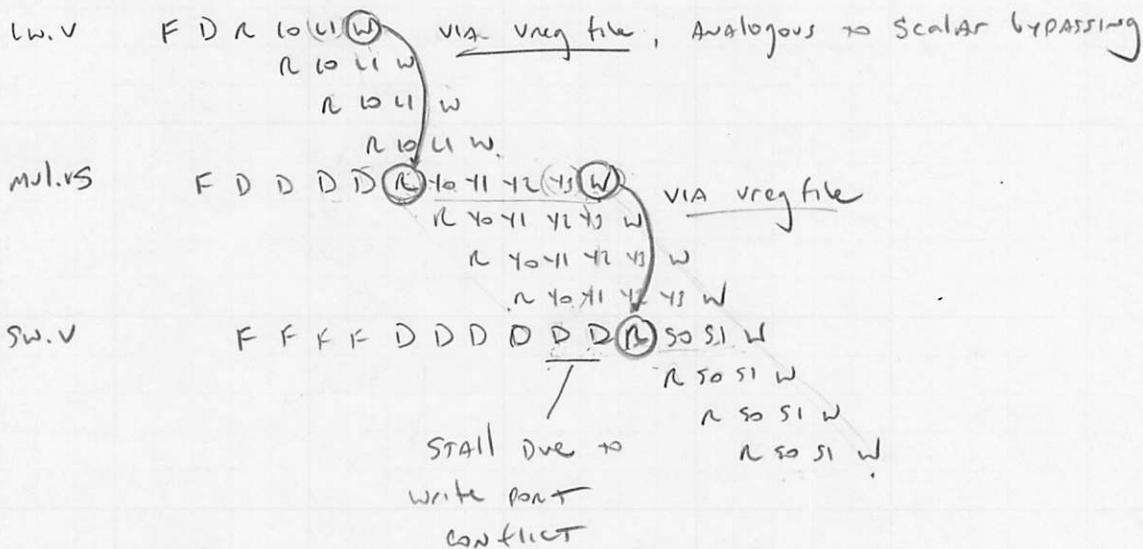 LW.V F D R L0 L1 W VIA Vreg file, ANAlogous to ScalAr bypAssing
R L0 L1 W
R L0 L1 W
R L0 L1 W
Mul.VS F D D D D R Y0 Y1 Y2 Y3 W VIA vreg file
R Y0 Y1 Y2 Y3 W
R Y0 Y1 Y2 Y3 W
R Y0 Y1 Y2 Y3 W
SW.V F F F F D D D D D D R S0 S1 W
R S0 S1 W
R S0 S1 W
R S0 S1 W
STAll Due to
write port
conflict